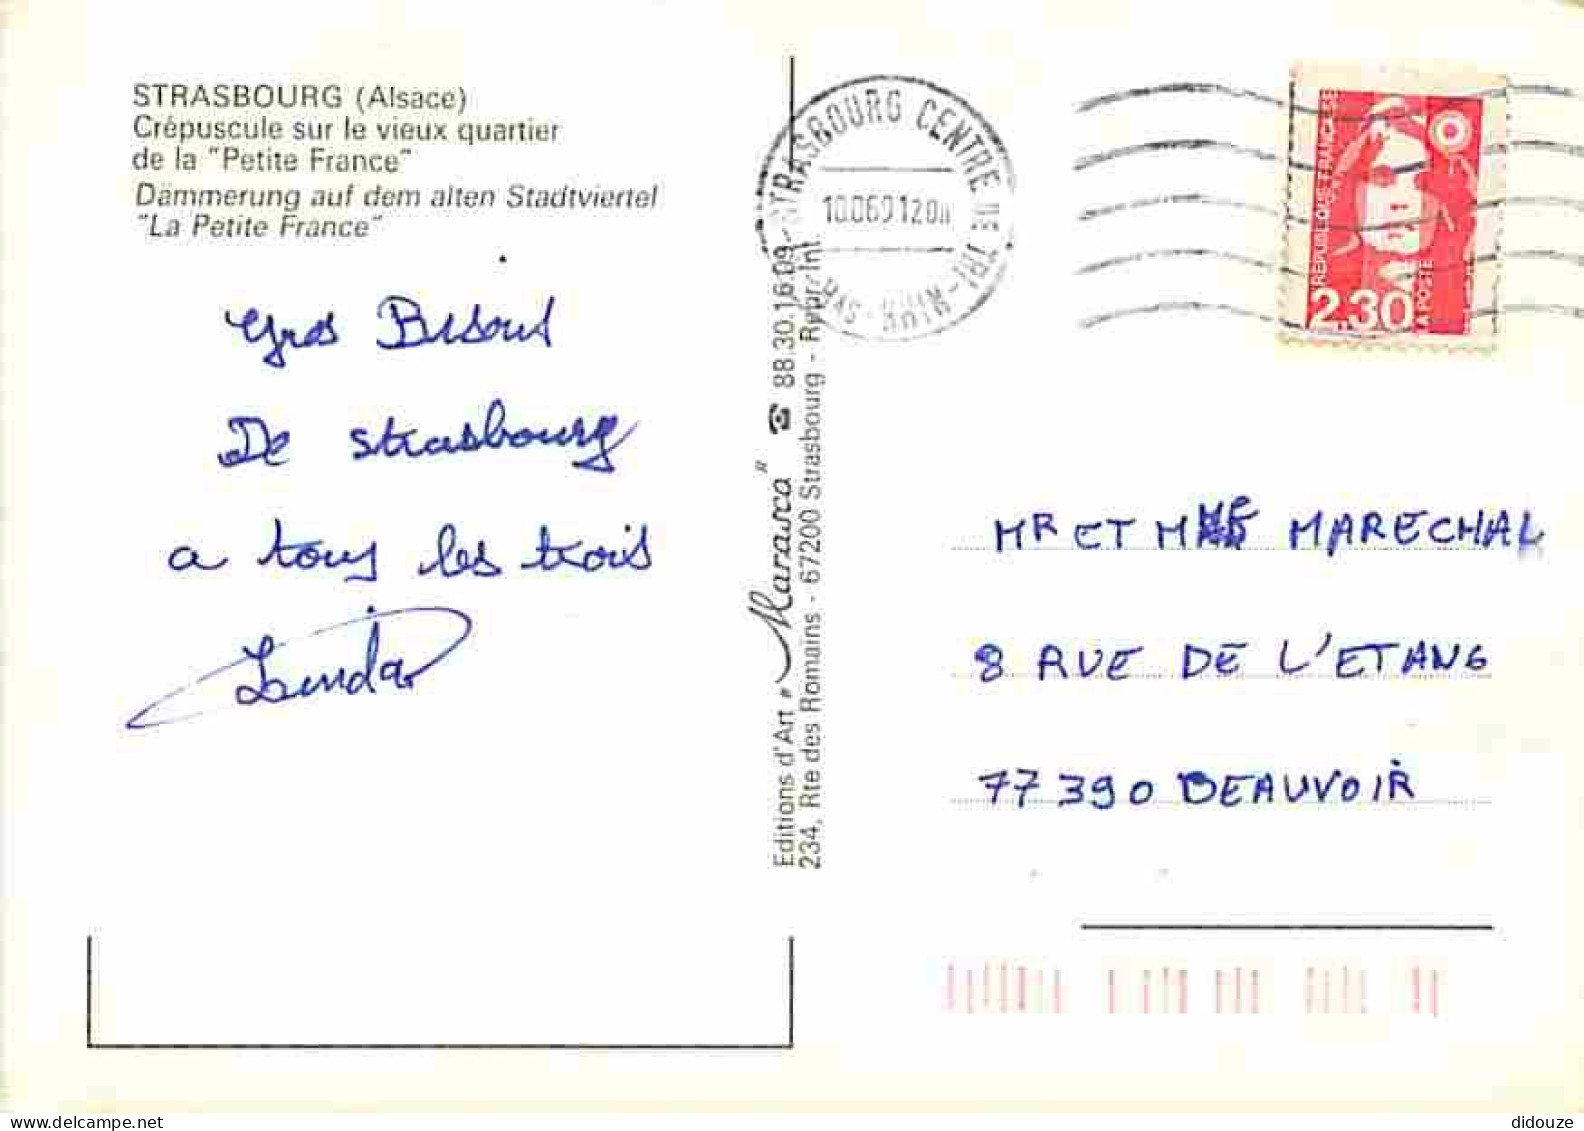 STRASBOURG (Alsace)
Crépuscule sur le vieux quartier
de la "Petite France"
Dämmerung auf dem alten Stadtviertel
"La Petite France"
Gros Bisous
De Strasbourg
a tous les trois
Linda
Editions d'Art "Marasca" ☎ 88.30.16.09 -
234, Rte des Romains - 67200 Strasbourg - Repr. Int.
STRASBOURG CENTRE DE TRI
10.06.91 20H
BAS-RHIN
REPUBLIQUE FRANÇAISE
2.30
LA POSTE
MR ET MME MARECHAL
8 RUE DE L'ETANG
77390 BEAUVOIR
delcampe.net
didouze